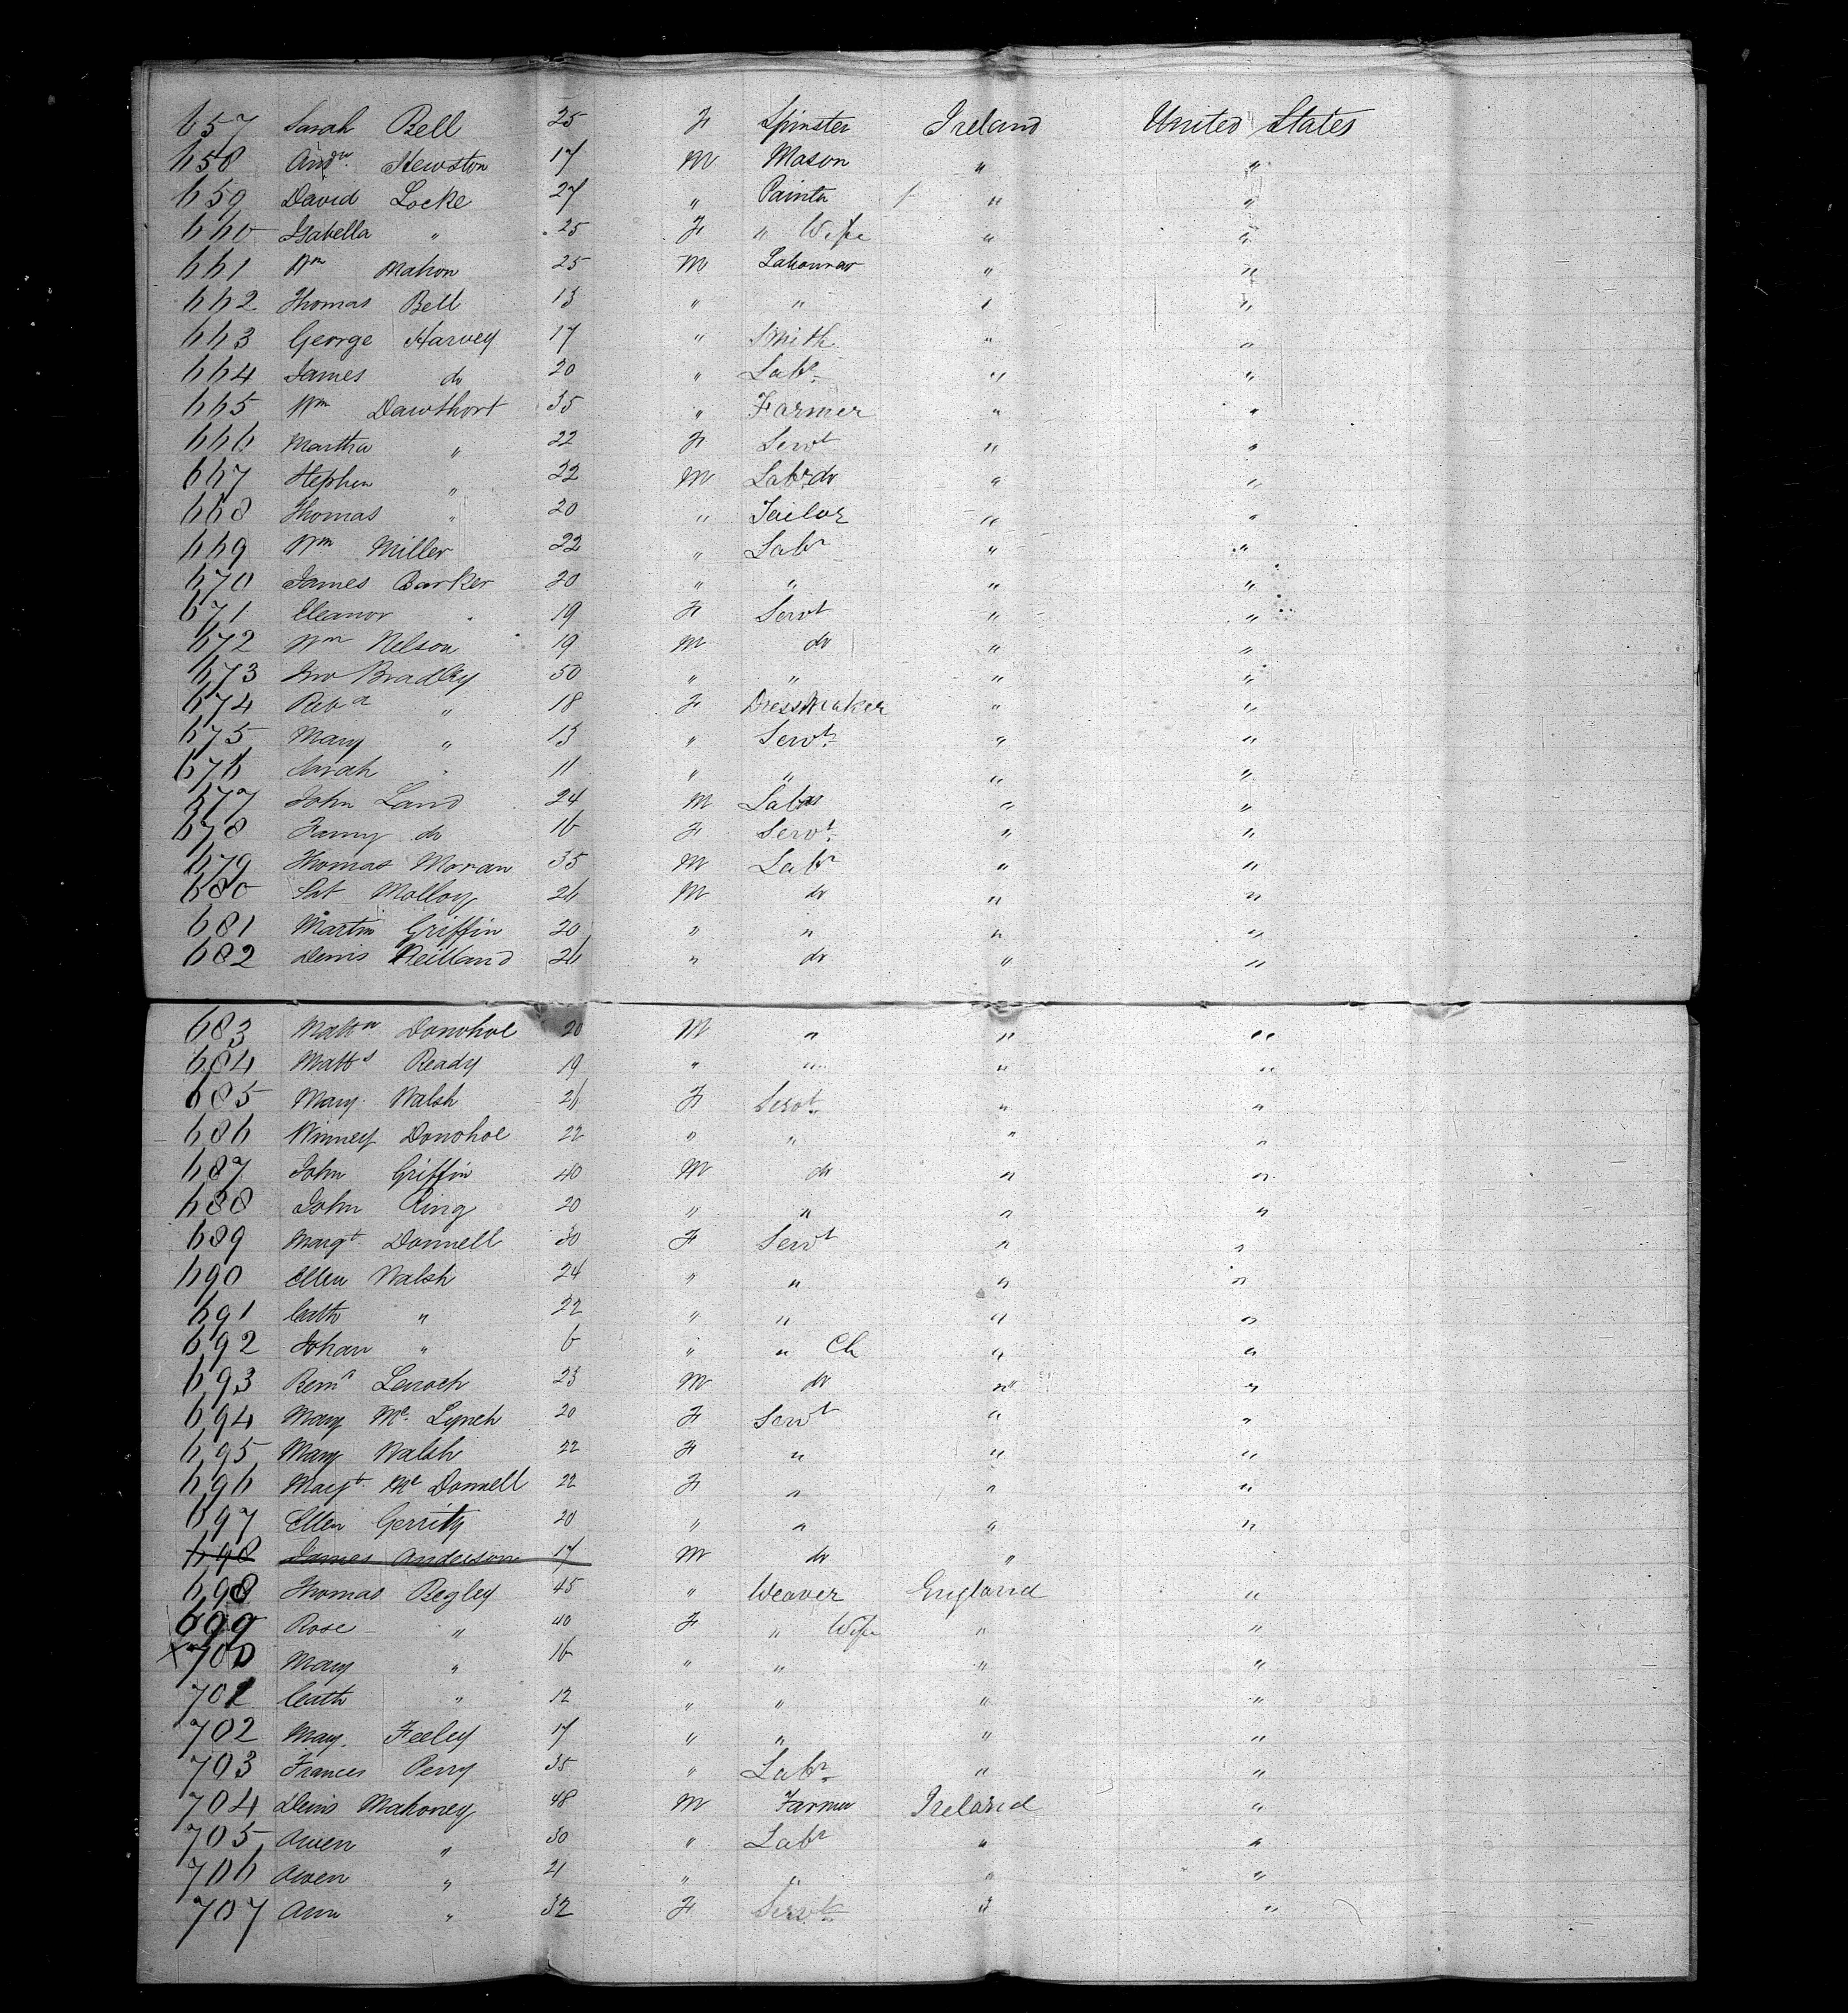 657 Sarah Bell 25 F Spinster Ireland United States
658 Andw. Hewston 17 M Mason " "
659 David Locke 27 " Painter " "
660 Isabella " 25 F " Wife " "
661 Wm Mahon 25 M Labourer " "
662 Thomas Bell 13 " " " "
663 George Harvey 17 " Smith " "
664 James do 20 " Labr. " "
665 Wm Dawthort 35 " Farmer " "
666 Martha " 22 F Servt " "
667 Stephen " 22 M Labr do " "
668 Thomas " 20 " Tailor " "
669 Wm Miller 22 " Labr " "
670 James Barker 20 " " " "
671 Eleanor " 19 F Servt " "
672 Wm Nelson 19 M do " "
673 Jno Bradley 50 " " " "
674 Reba " 18 F Dressmaker " "
675 Mary " 13 " Servt. " "
676 Sarah " 11 " " " "
677 John Land 24 M Labr " "
678 Fanny do 16 F Servt. " "
679 Thomas Moran 35 M Labr " "
680 Pat Molloy 26 M do " "
681 Martin Griffin 20 " " " "
682 Denis Reilland 26 " do " "
683 Mattw Donohoe 20 M " " "
684 Matts Ready 19 " " " "
685 Mary Walsh 26 F Servt. " "
686 Winney Donohoe 22 " " " "
687 John Griffin 40 M do " "
688 John Ring 20 " " " "
689 Margt Donnell 30 F Servt " "
690 Ellen Walsh 24 " " " "
691 Cath " 22 " " " "
692 Johan " 6 " " Ch " "
693 Lavoch 23 M do " "
694 Mary Mc. Lynch 20 F Servt " "
695 Mary Walsh 22 F " " "
696 Margt. Mc Donnell 22 F " " "
697 Ellen Gerrity 20 " " " "
698 James Anderson 17 M do "
698 Thomas Begley 45 " Weaver England "
699 Rose " 40 F " Wife " "
x 700 Mary " 16 " " " "
701 Cath " 12 " " " "
702 Mary. Feeley 17 " " " "
703 Frances Perry 35 " Labr. " "
704 Denis Mahoney 48 M Farmer Ireland "
705 Owen " 30 " Labr " "
706 Owen " 21 " " " "
707 Ann " 32 F Servt. " "